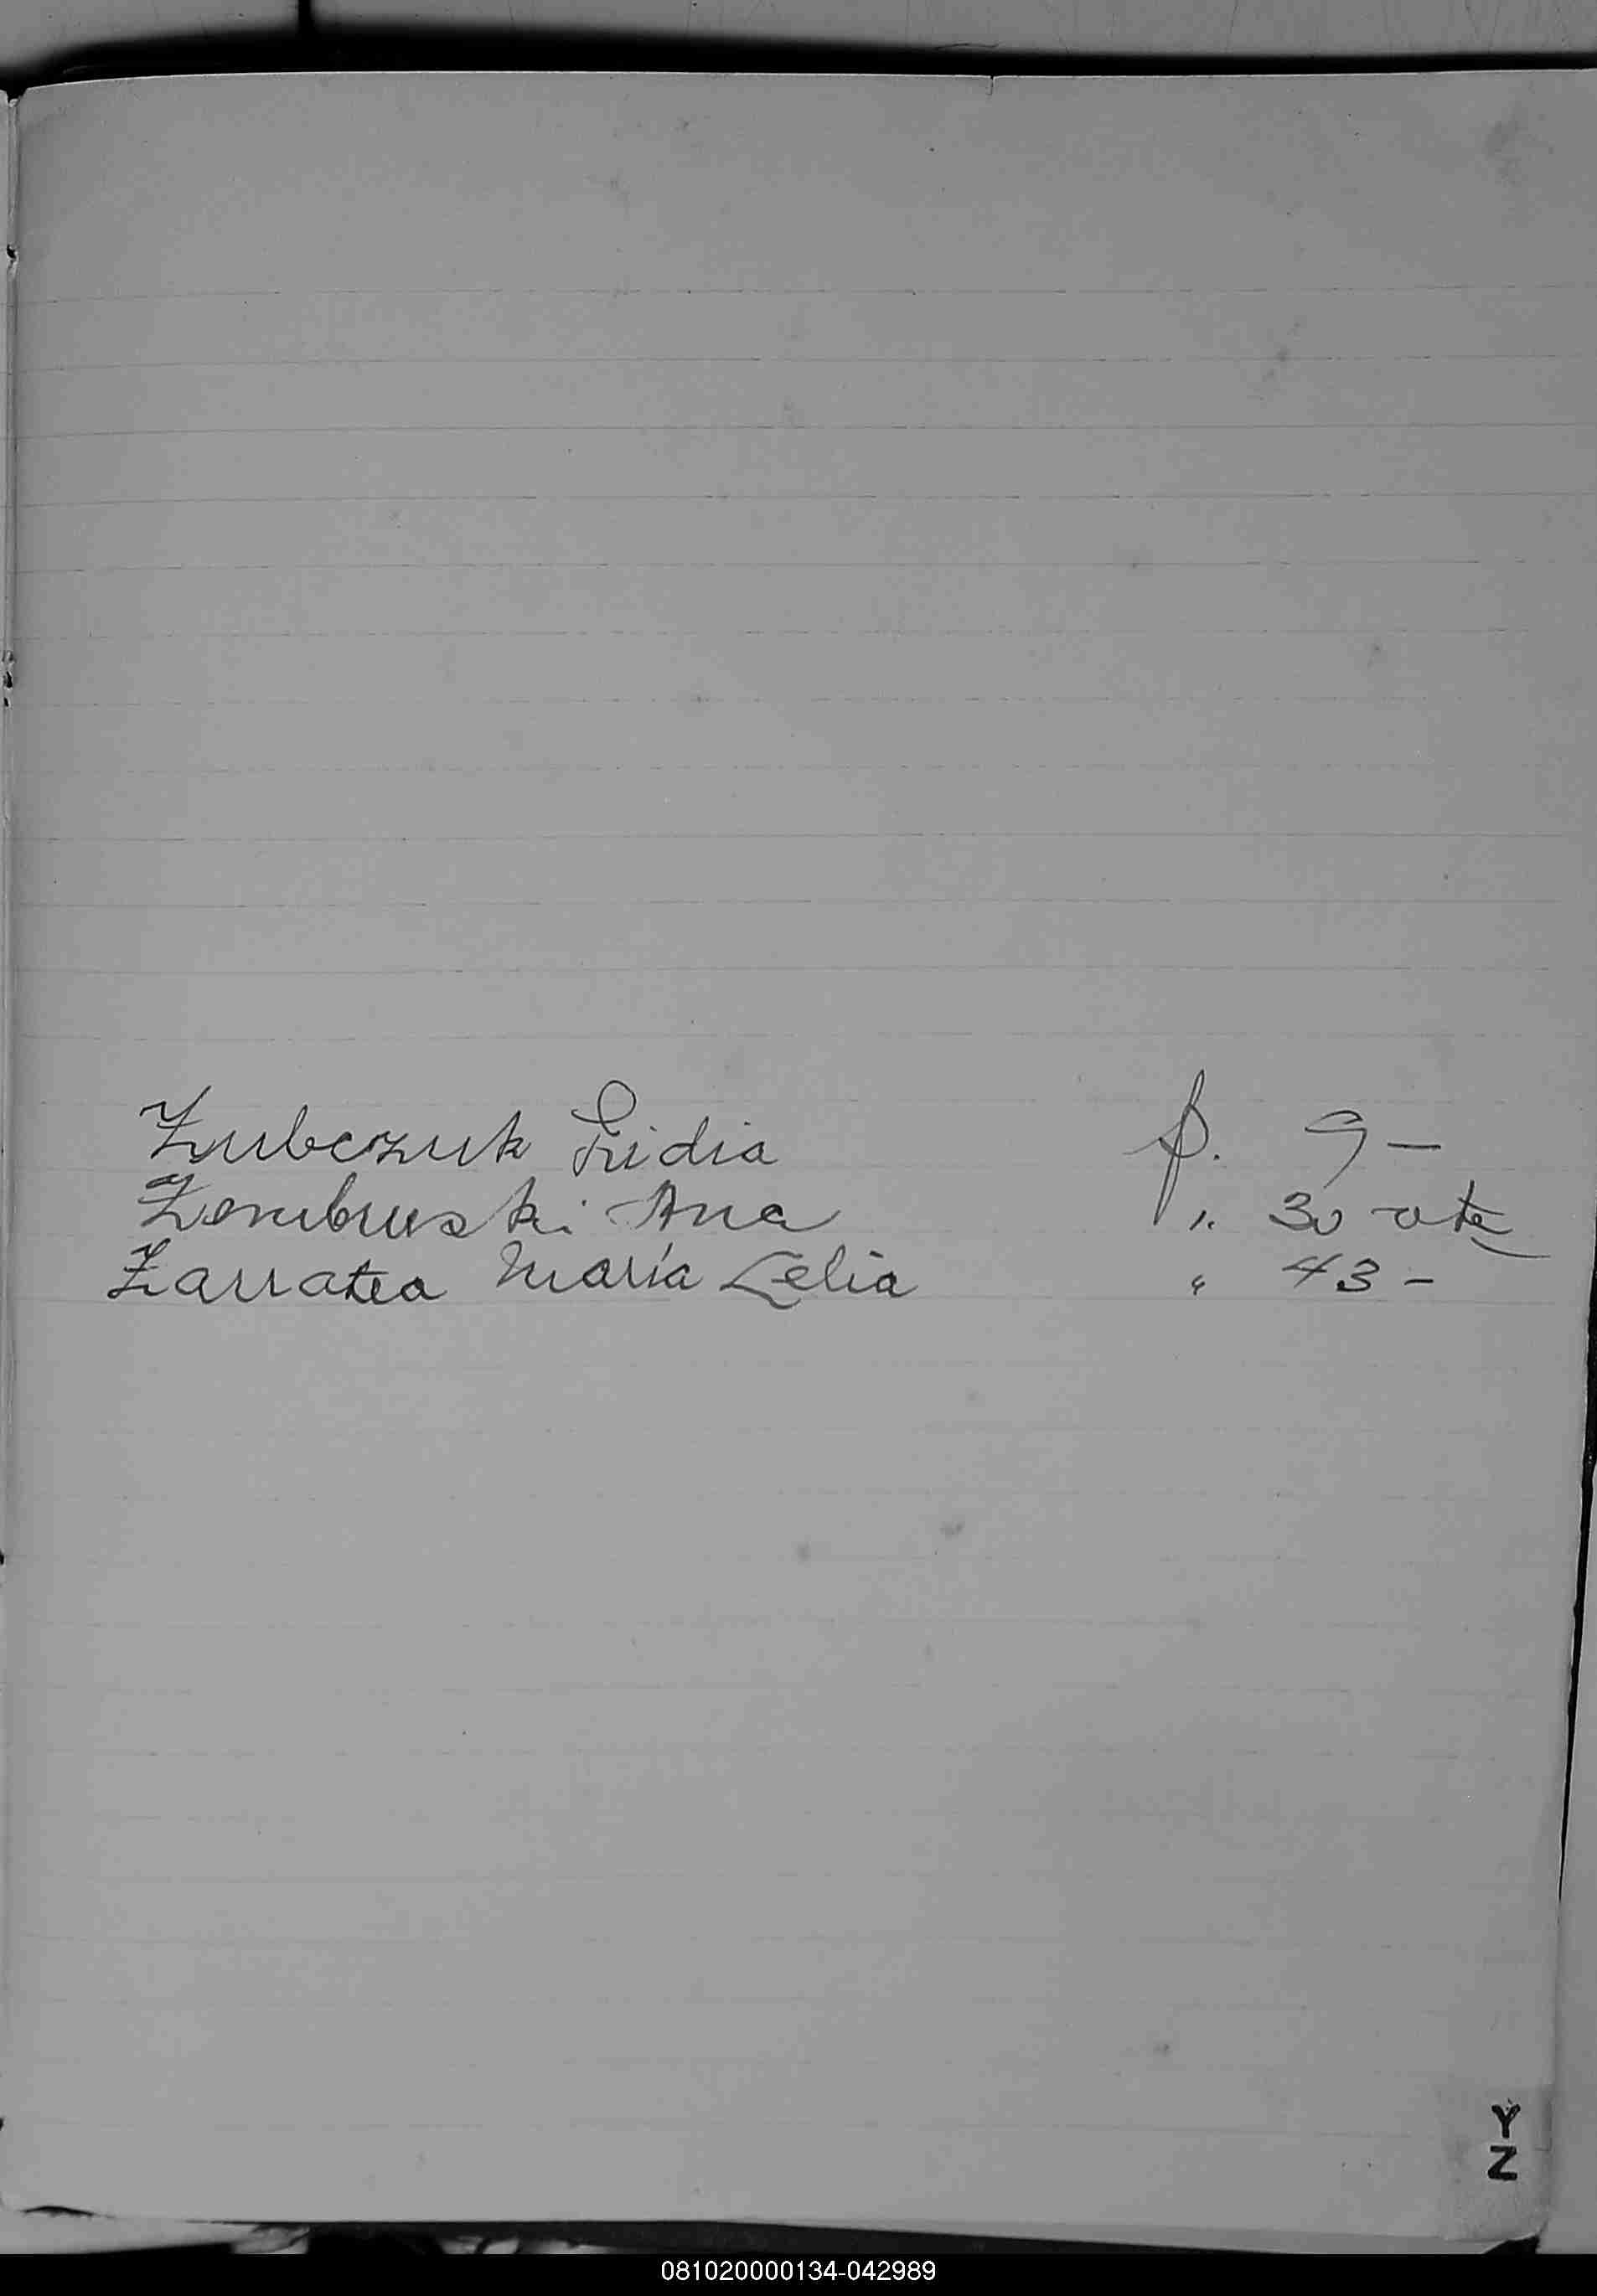 Zubczuk Lidia f. 9 —
Zembruski Ana ". 30 vta
Zarratea María Celia " 43 –
Y
Z
081020000134-042989